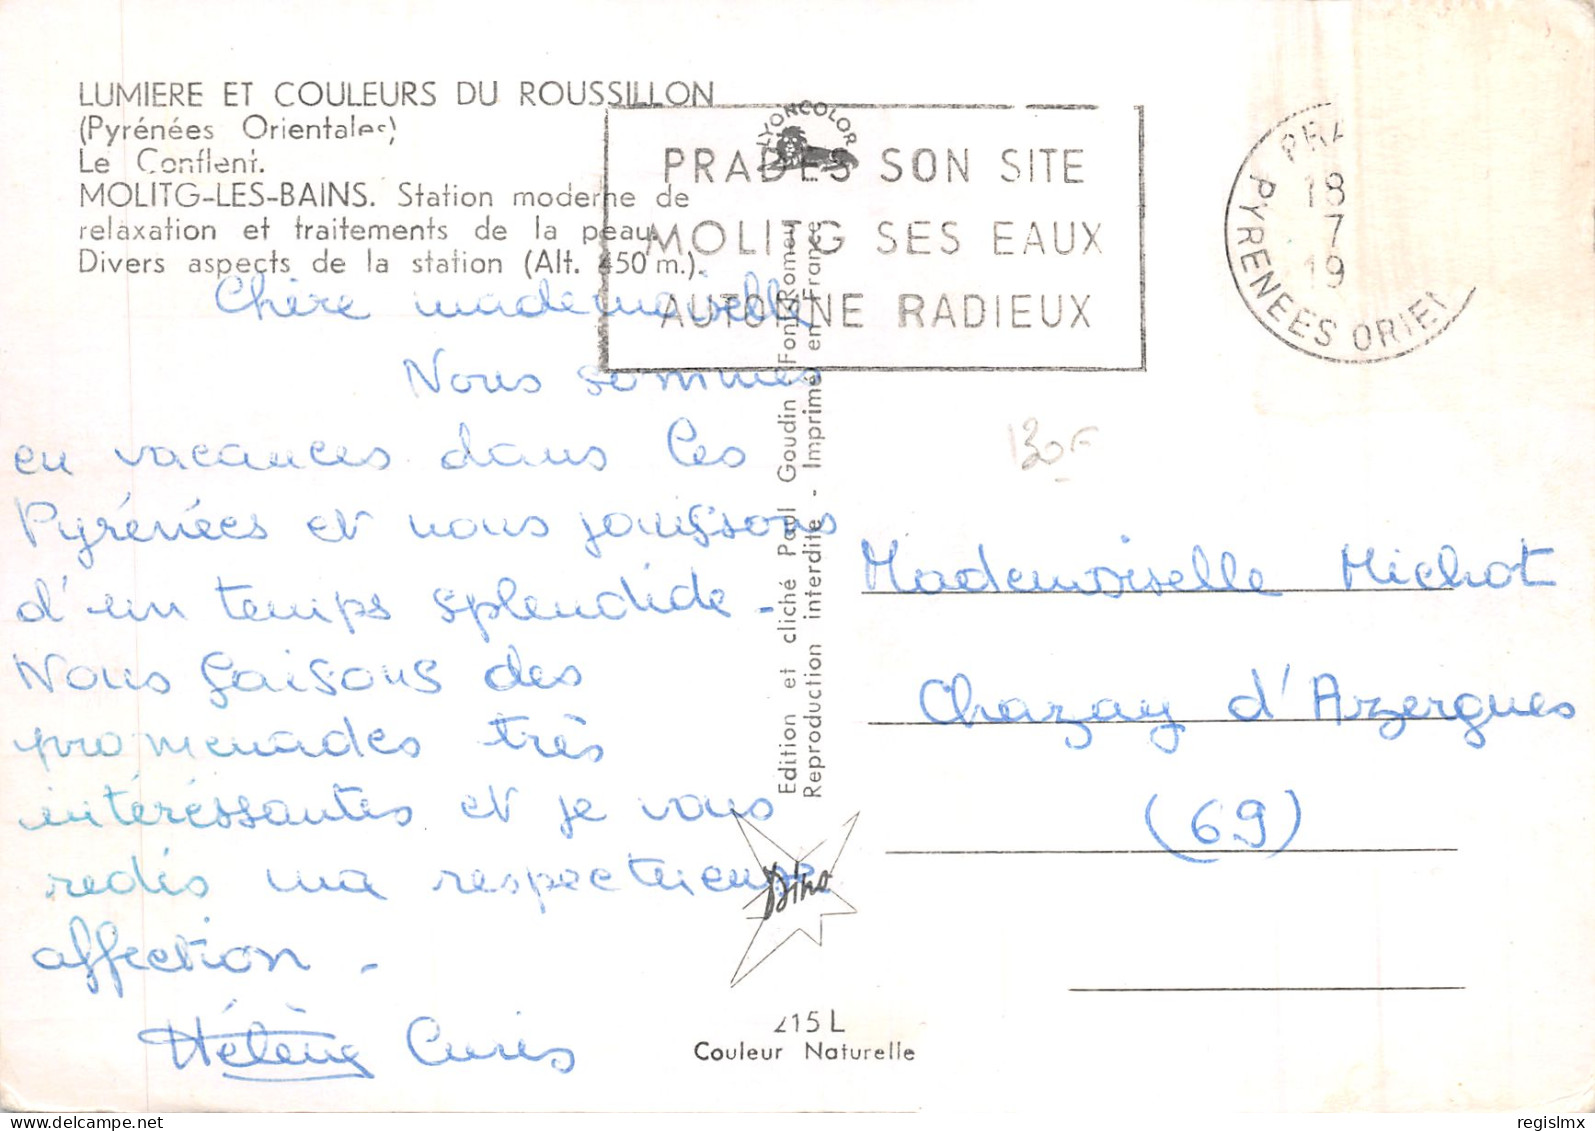 LUMIERE ET COULEURS DU ROUSSILLON
(Pyrénées Orientales)
Le Conflent.
MOLITG-LES-BAINS. Station moderne de
relaxation et traitements de la peau.
Divers aspects de la station (Alt. 450 m.).
LYONCOLOR
PRADES SON SITE
MOLITG SES EAUX
AUTOMNE RADIEUX
PRA
18
7
19
PYRENEES ORIEN
Chère mademoiselle
Nous sommes
en vacances dans les
Pyrénées et nous jouissons
d'un temps splendide -
Nous faisons des
promenades très
intéréssantes et je vous
redis ma respectueuse
affection -
Hélène
Edition et cliché Paul Goudin Font-Romeu
Reproduction interdite - Imprimé en France
130F
Mademoiselle Michot
Chazay d'Azergues
(69)
Dino
215 L
Couleur Naturelle
regislmx